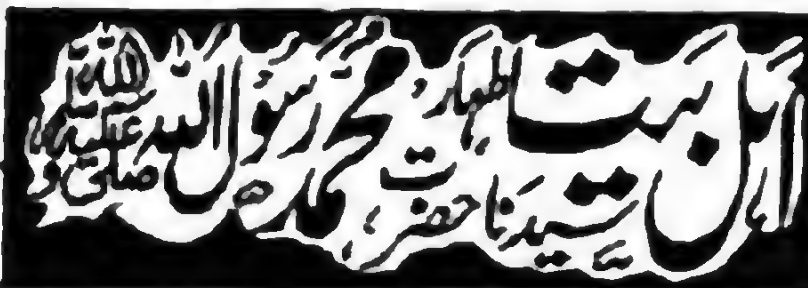 اہل بیت اطہار سیدنا حضرت محمد رسول اللہ صلی اللہ علیہ وسلم